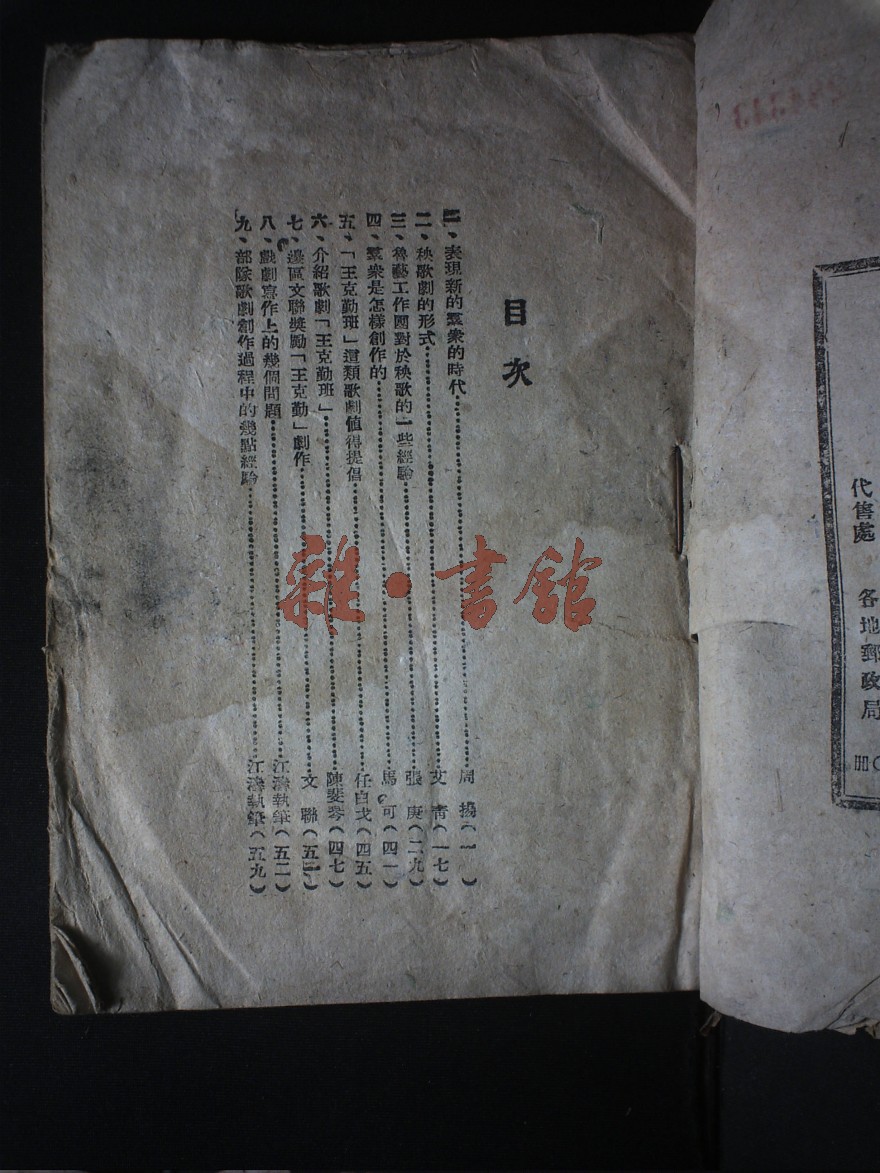 代售處 各地郵政局
目次
一、表現新的羣衆的時代……周揚(一)
二、秧歌劇的形式……艾青(一七)
三、魯藝工作團對於秧歌的一些經驗……張庚(二九)
四、羣衆是怎樣創作的……馬可(四一)
五、「王克勤班」這類歌劇值得提倡……任白戈(四五)
六、介紹歌劇「王克勤班」……陳斐琴(四七)
七、邊區文聯獎勵「王克勤」劇作……文聯(五二)
八、戲劇寫作上的幾個問題……江濤執筆(五二)
九、部隊歌劇創作過程中的幾點經驗……江濤執筆(五九)
雜·書館